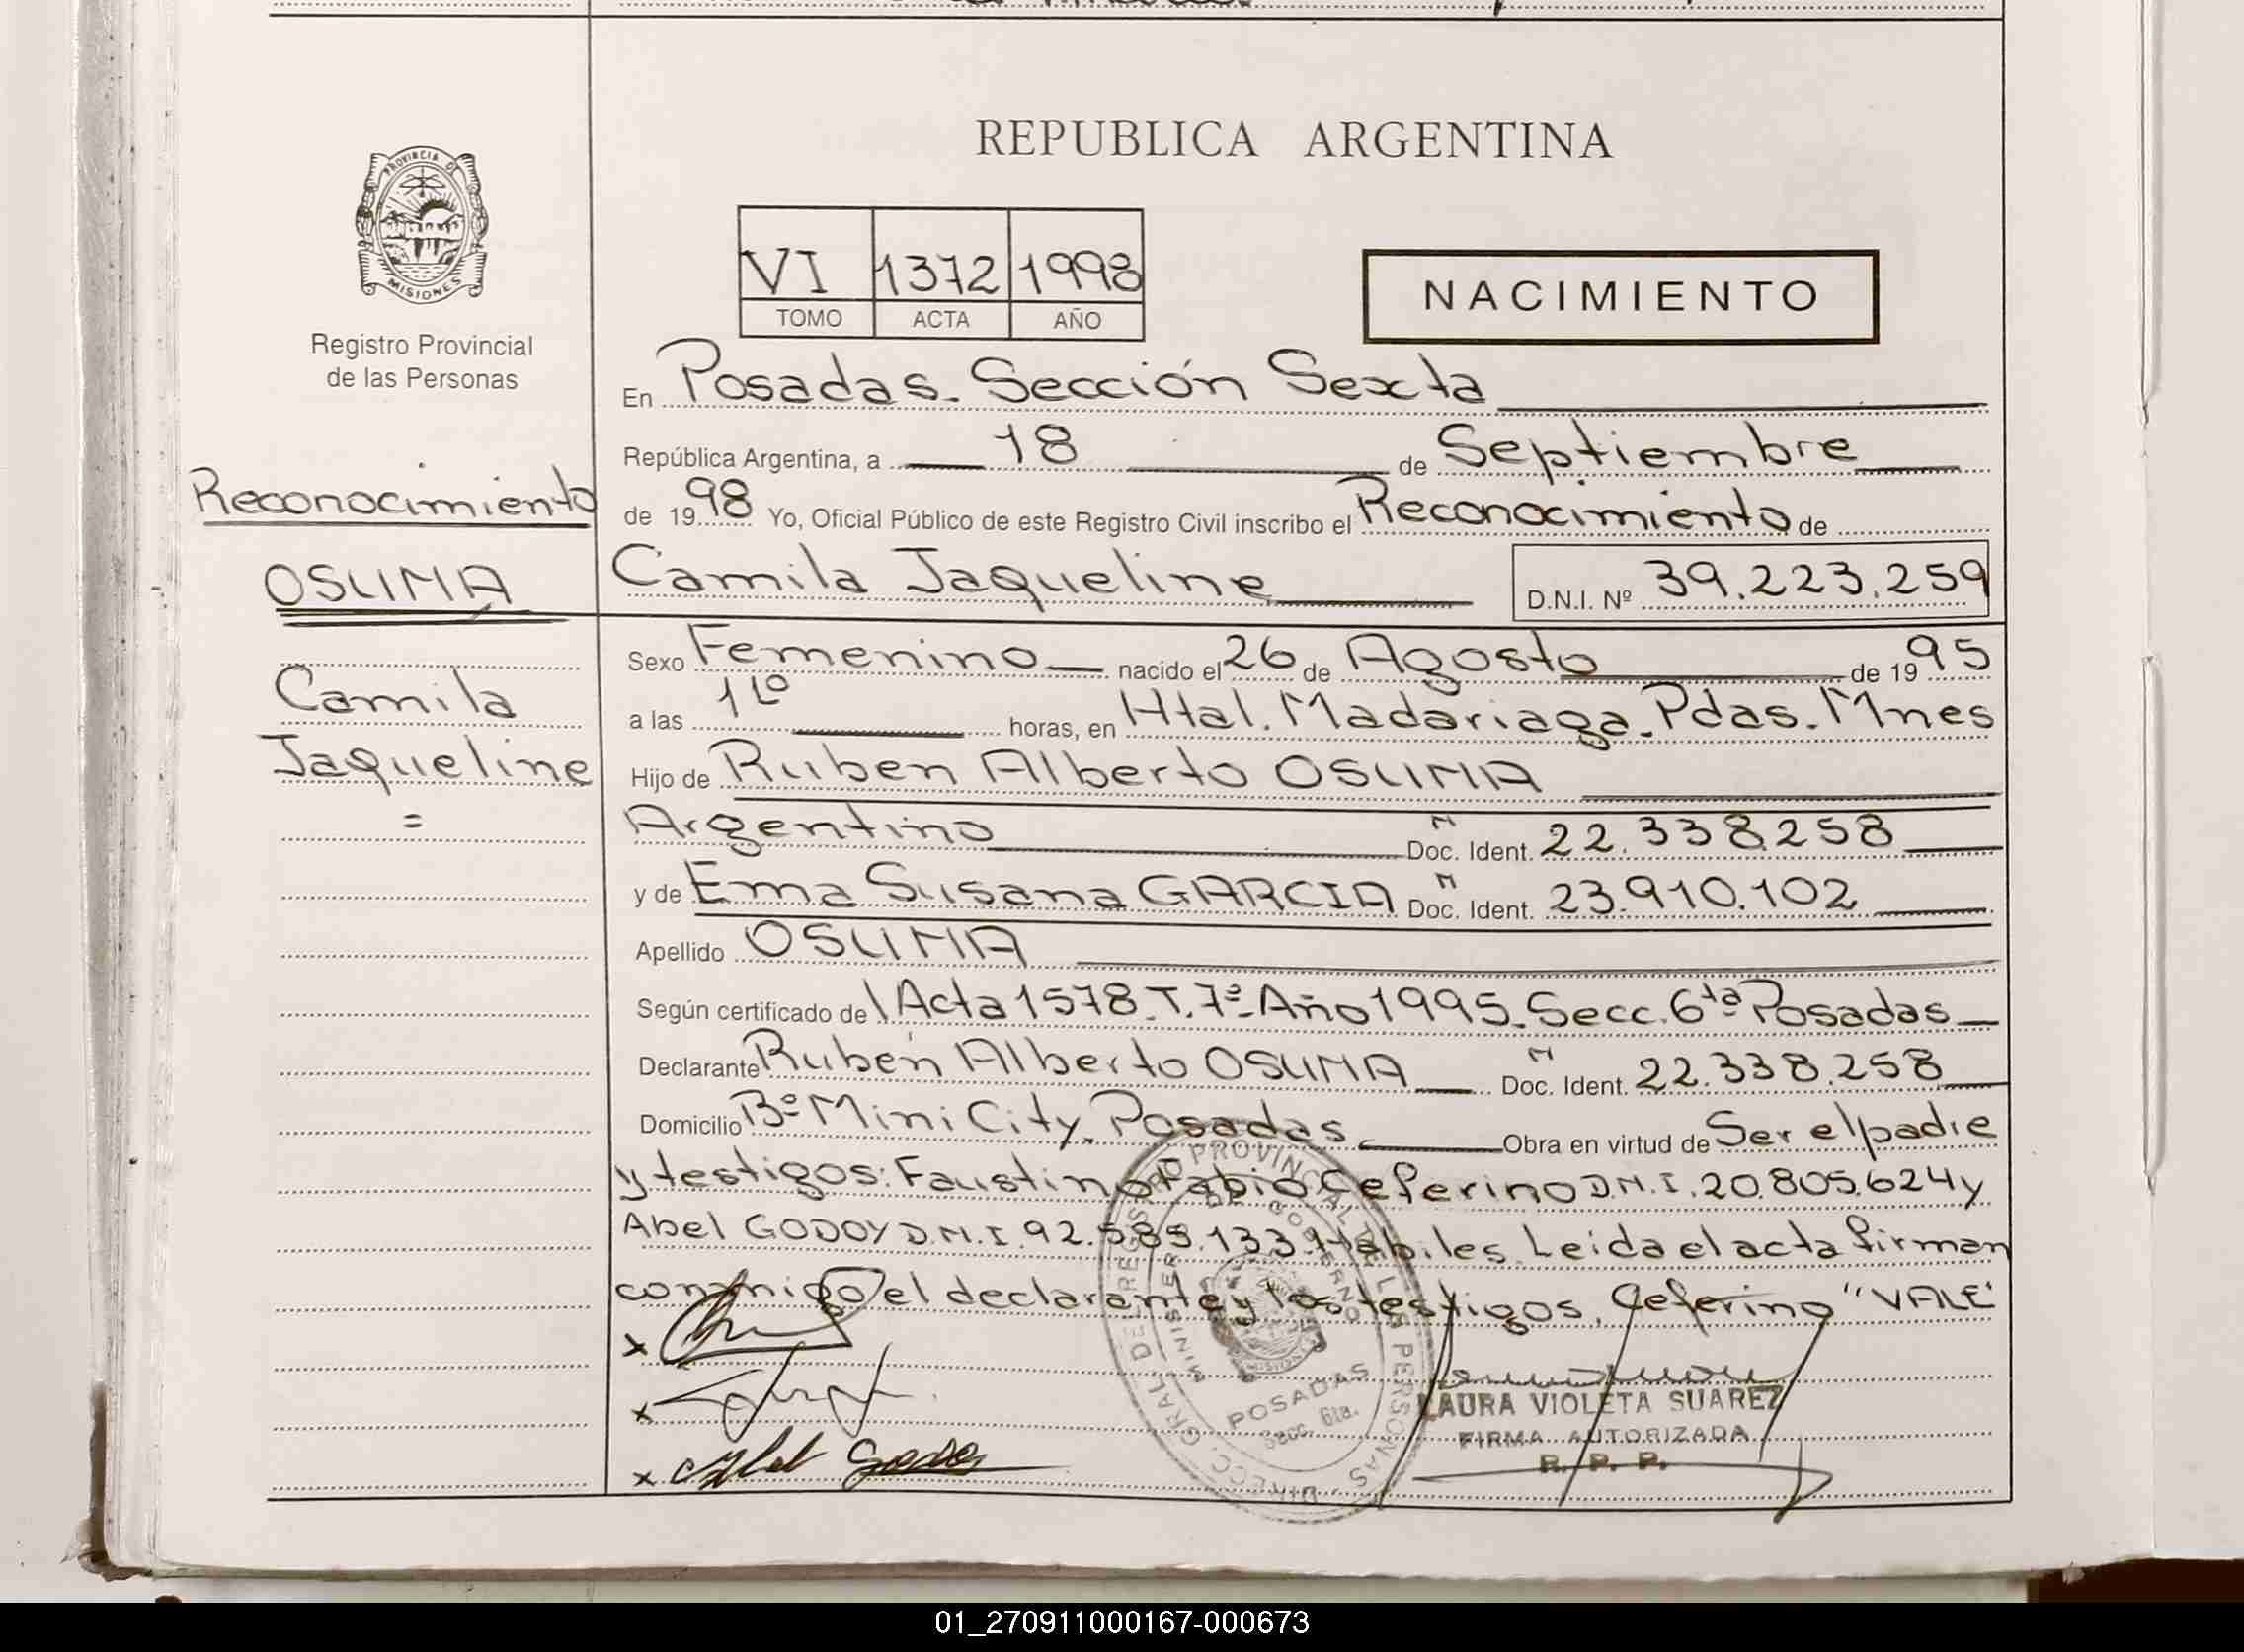 REPUBLICA ARGENTINA
PROVINCIA DE
MISIONES
Registro Provincial
de las Personas
VI 1372 1998
TOMO ACTA AÑO
NACIMIENTO
En Posadas. Sección Sexta
República Argentina, a 18 de Septiembre
Reconocimiento
de 1998 Yo, Oficial Público de este Registro Civil inscribo el Reconocimiento de
OSUNA
Camila Jaqueline D.N.I. Nº 39.223.259
Sexo Femenino nacido el 26 de Agosto de 1995
Camila
a las horas, en Htal. Madariaga. Pdas. Mnes
Jaqueline
=
Hijo de Ruben Alberto OSUNA
Argentino N Doc. Ident. 22.338.258
y de Ema Susana GARCIA N Doc. Ident. 23.910.102
Apellido OSUNA
Según certificado de Acta 1578. T. 7º. Año 1995. Secc. 6ta Posadas
Declarante Ruben Alberto OSUNA N Doc. Ident. 22.338.258
Domicilio Bº Mini City. Posadas. Obra en virtud de Ser el padre
y testigos: Faustino Fabio Ceferino D.N.I. 20.805.624 y
Abel GODOY D.N.I. 92.585.133. Hábiles. Leida el acta firman
conmigo el declarante y los testigos. Ceferino "VALE"
x
x
x Abel Godoy
DIRECC. GRAL. DEL REGISTRO PROVINCIAL DE LAS PERSONAS
MINISTERIO DE GOBIERNO
MISIONES
POSADAS
Secc. 6ta.
LAURA VIOLETA SUAREZ
FIRMA AUTORIZADA
R. P. P.
01_270911000167-000673